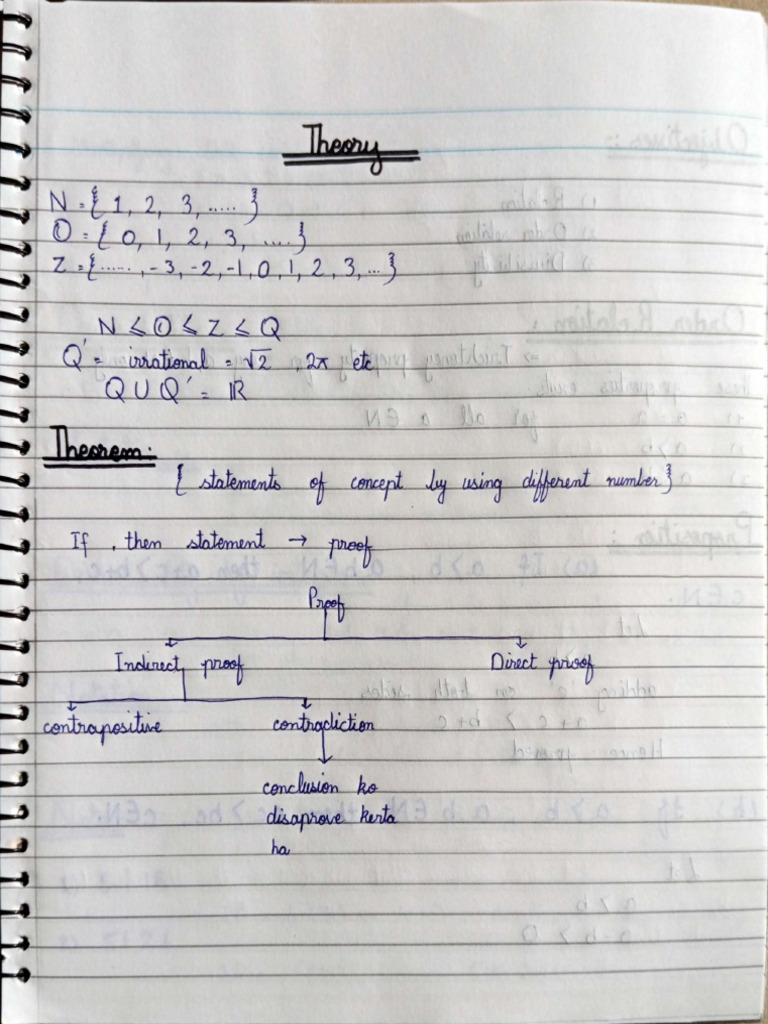 Theory
N = { 1, 2, 3, ..... }
O = { 0, 1, 2, 3, .... }
Z = { ..... , -3, -2, -1, 0, 1, 2, 3, ... }
N ≤ O ≤ Z ≤ Q
Q' = irrational = √2 , 2π etc
Q U Q' = ℝ
Theorem:
{ statements of concept by using different number }
If , then statement → proof
Proof
Indirect proof Direct proof
contrapositive contradiction
conclusion ko
disaprove kerta
ha